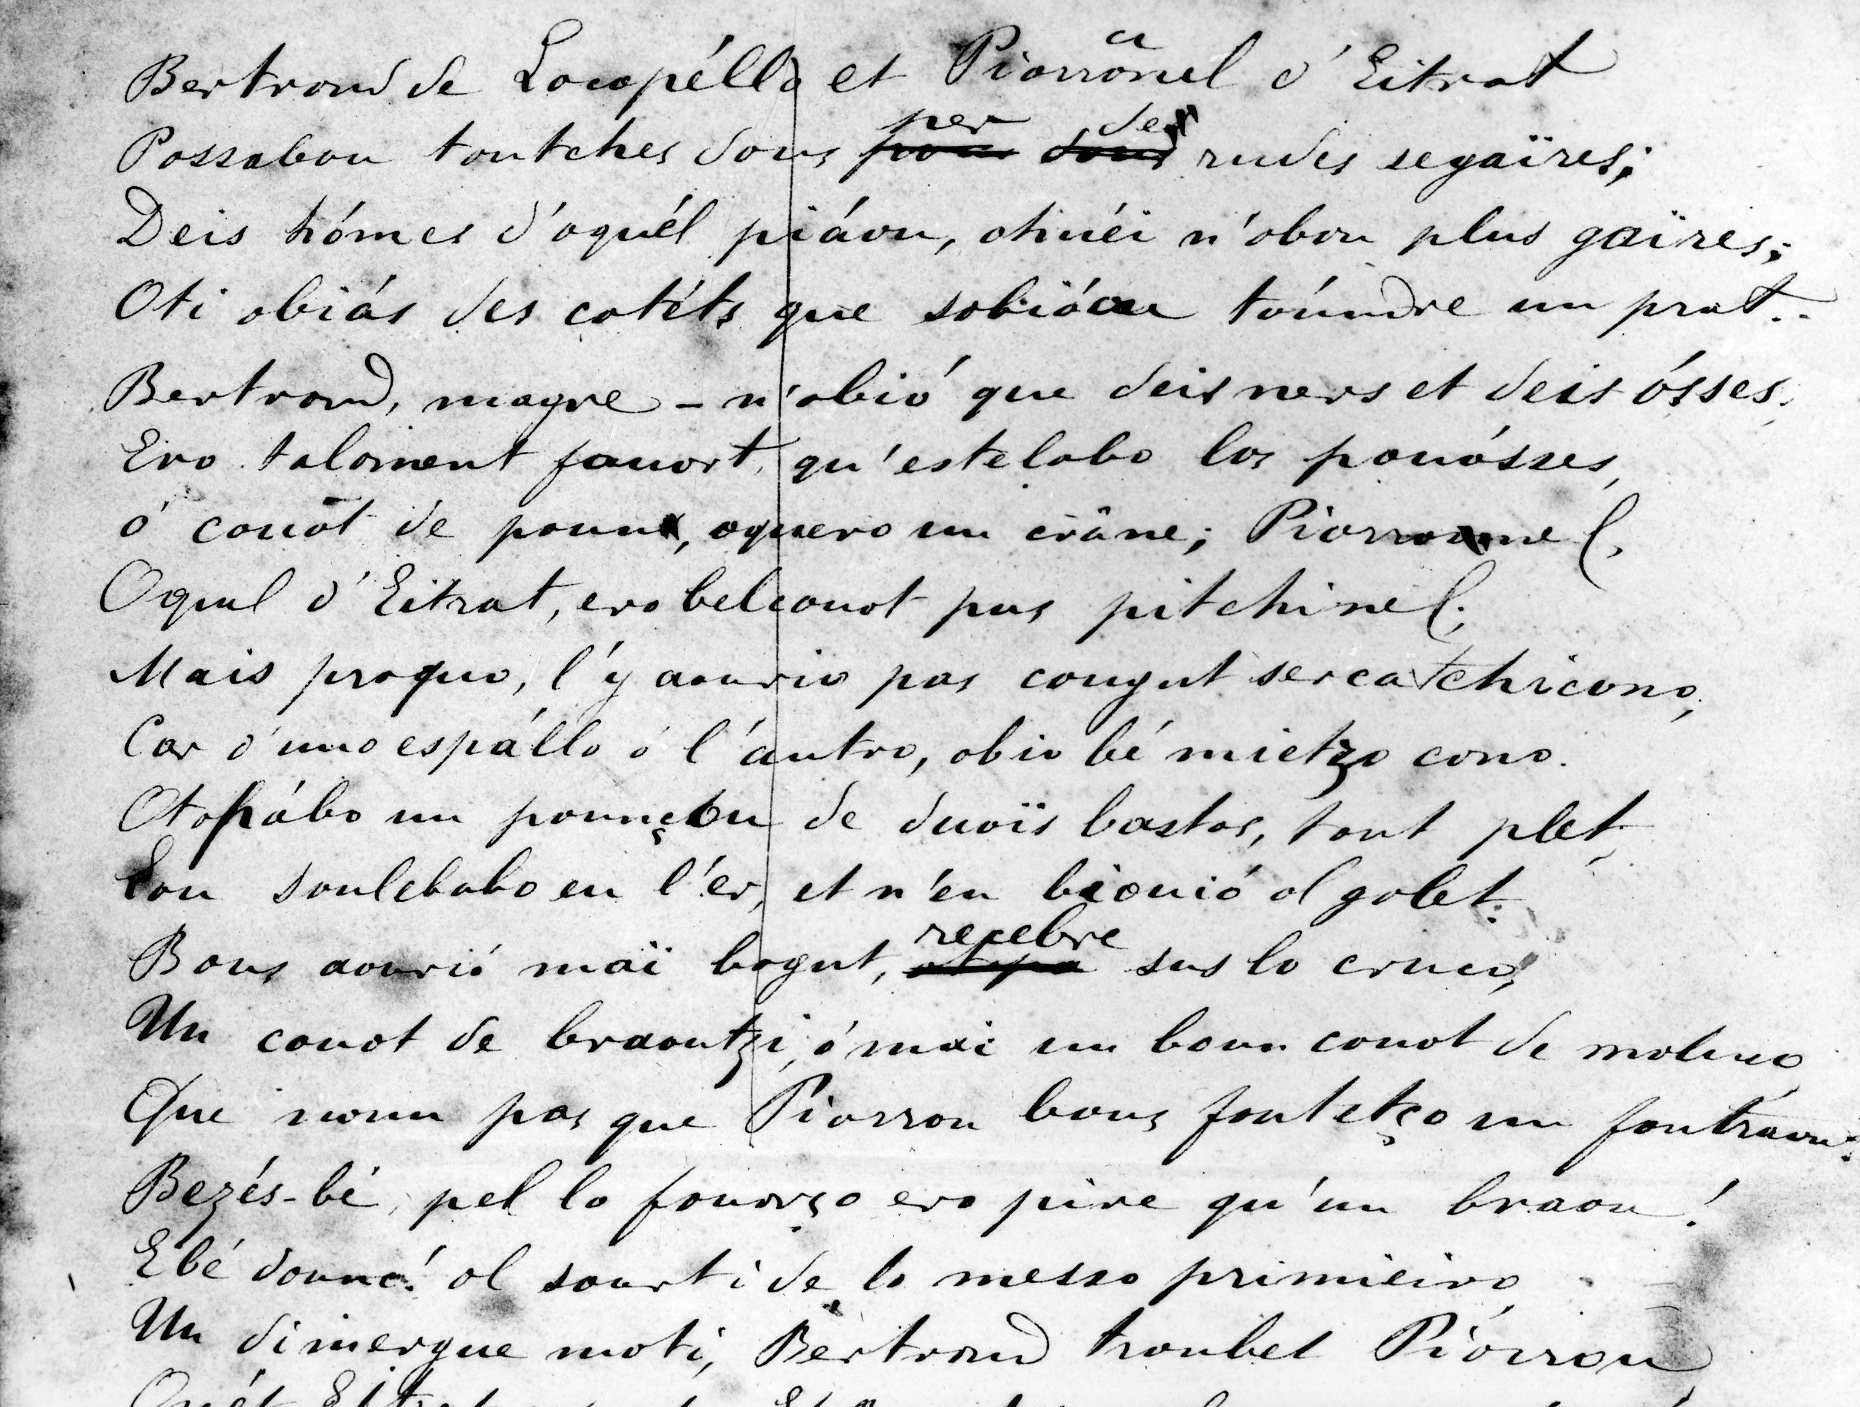 Bertrond de Locopéllo et Piorrŏnel d'Eitrat
Possabou toutches dous per de rudes segaïres;
Deis hómes d'oquél piáou, ohuéi n'obou plus gaïres;
Oti obiás des cotéts que sobióou toúndre un prat..
Bertrond, magre - n'obió que deis ners et deis ósses,
Ero toloment fouort, qu'estelabo los pouósses,
ó couot de poun, oquero un crâne; Piorrounel,
Oquel d'Eitrat, ero belcouot pus pitchinel;
Mais proquo, l'y aourio pas cougut serca tchicono,
Car d'uno espállo ó l'áutro, obio bé mietzo cono.
Otopábo un pounçou de duoïs bastos, tout plet,
Lou soulebabo en l'er, et n'en biouió ol golet.
Bous aourió maï bogut, recebre sus lo cruco,
Un couot de braoutzi, ó mai un boun couot de moluco
Que noun pas que Piorrou bous foutetço un foutraou:
Bezés-bé, pel lo fouorço ero pire qu'un braou!
Ebé dounc! ol sourti de lo messo primieiro
Un dimergue moti, Bertrond troubet Piórrou